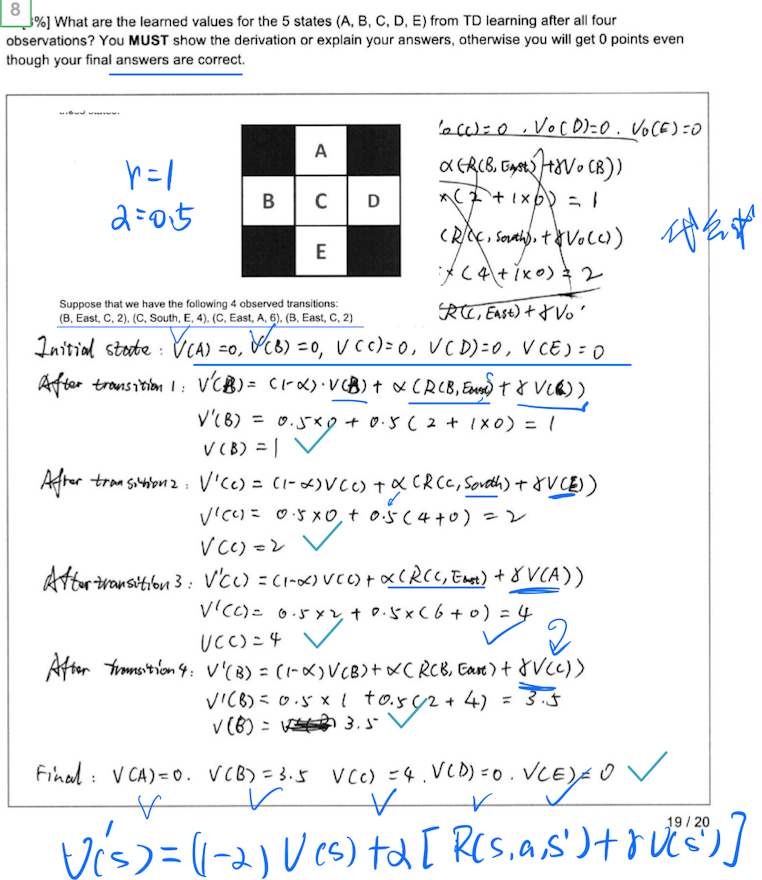 8
%] What are the learned values for the 5 states (A, B, C, D, E) from TD learning after all four
observations? You MUST show the derivation or explain your answers, otherwise you will get 0 points even
though your final answers are correct.
V₀(C)=0 , V₀(D)=0 . V₀(E)=0
α(R(B, East)+γV₀(B))
×(2+1×0) = 1
(R(C, South), +γV₀(C))
×(4+1×0) = 2
R(C, East)+γV₀'
r=1
α=0.5
A
B C D
E
Suppose that we have the following 4 observed transitions:
(B, East, C, 2), (C, South, E, 4), (C, East, A, 6), (B, East, C, 2)
Initial state : V(A) =0, V(B) =0, V(C)=0, V(D)=0, V(E)=0
After transition 1: V'(B)= (1-α)·V(B)+ α (R(B, East) + γ V(C))
V'(B) = 0.5×0 + 0.5 ( 2 + 1×0) = 1
V(B) = 1
After transition 2 : V'(C) = (1-α)V(C) + α (R(C, South) + γV(E))
V'(C) = 0.5×0 + 0.5(4+0) = 2
V(C) = 2
After transition 3 : V'(C) =(1-α)V(C)+ α(R(C, East) + γV(A))
V'(C)= 0.5×2 + 0.5×(6+0) = 4
V(C) = 4
2
After transition 4: V'(B) = (1-α)V(B)+α(R(B, East) + γV(C))
V'(B) = 0.5×1 +0.5(2+4) = 3.5
V(B) = 3.5
Final : V(A)=0. V(B)=3.5 V(C) =4. V(D)=0. V(E)=0
19 / 20
V'(s)=(1-α)V(s)+α[R(s,a,s')+γV(s')]